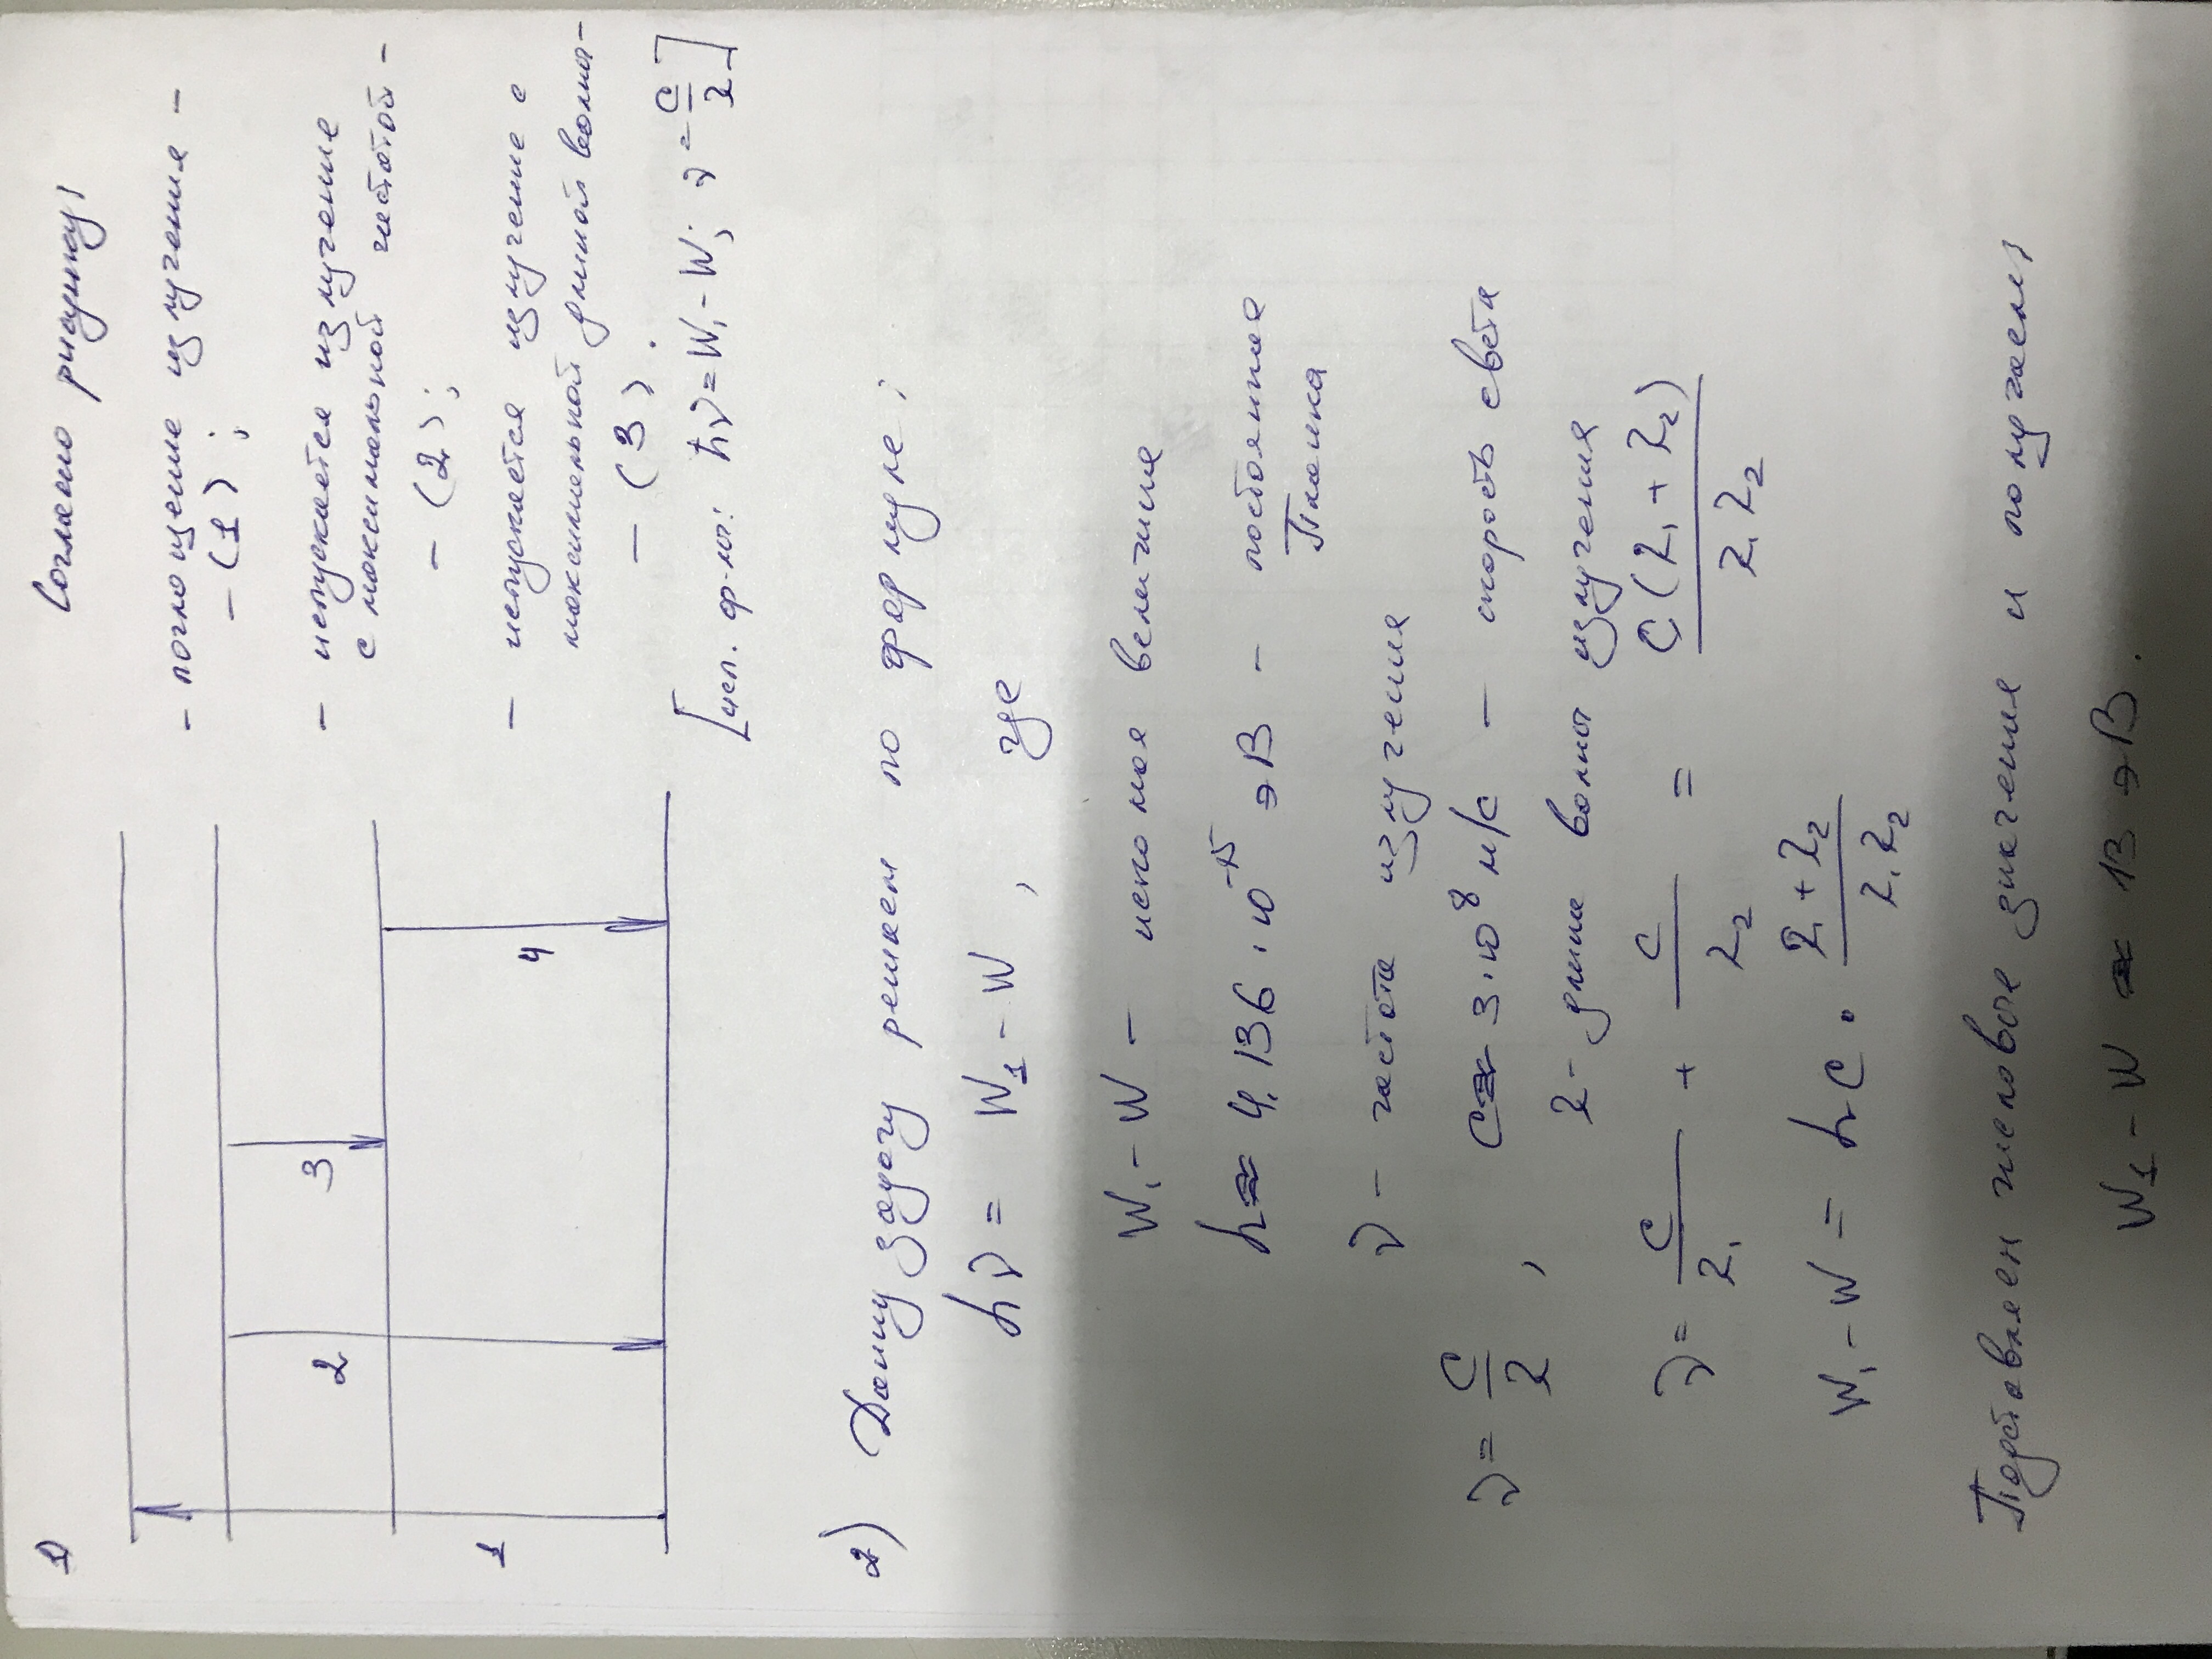 1)
1
2
3
4
Согласно рисунку:
- поглощение излучения -
- (1);
- испускается излучение
с максимальной частотой -
- (2);
- испускается излучение с
максимальной длиной волны -
- (3).
[исп. ф-лы: hν = W₁ - W; ν = c/λ]
2) Данную задачу решаем по формуле:
hν = W₁ - W, где
W₁ - W - искомая величина
h ≈ 4,136 · 10⁻¹⁵ эВ - постоянная
Планка
ν - частота излучения
ν = c/λ, c ≈ 3 · 10⁸ м/с - скорость света
λ - длина волны излучения
ν = c/λ₁ + c/λ₂ = c(λ₁ + λ₂)/λ₁λ₂
W₁ - W = hc · λ₁ + λ₂/λ₁λ₂
Подставляем числовые значения и получаем:
W₁ - W ≈ 13 эВ.